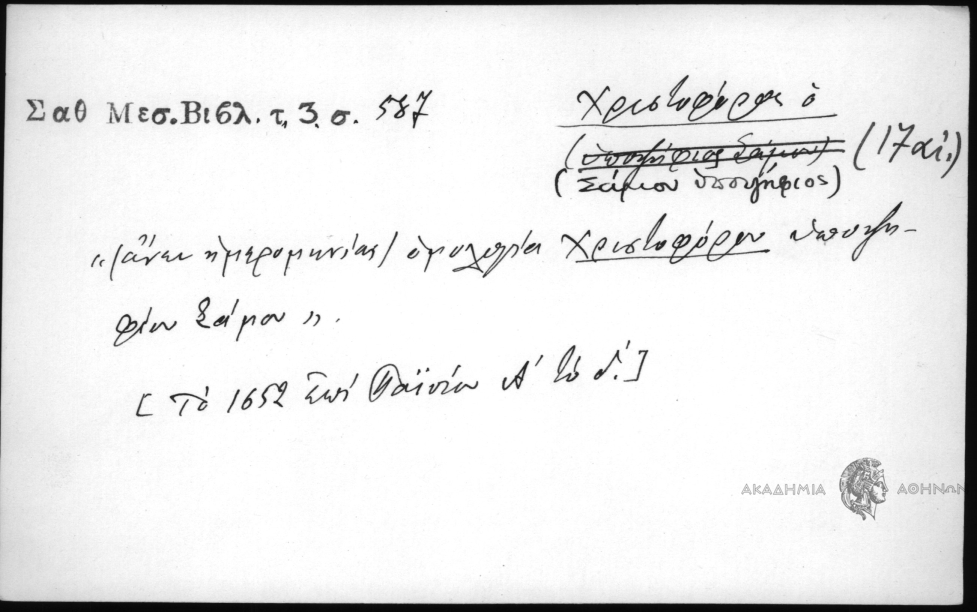 Σαθ Μεσ.Βιβλ. τ. 3. σ. 587
Χριστοφόρος ὁ
(ὑποψήφιος Σάμου) (17 αἰ.)
(Σάμου ὑποψήφιος)
"(ἄνευ ἡμερομηνίας) ὁμολογία Χριστοφόρου ὑποψη-
φίου Σάμου".
[Τὸ 1652 ἐπὶ Παϊσίου Α' τὸ δ'.]
ΑΚΑΔΗΜΙΑ ΑΘΗΝΩΝ